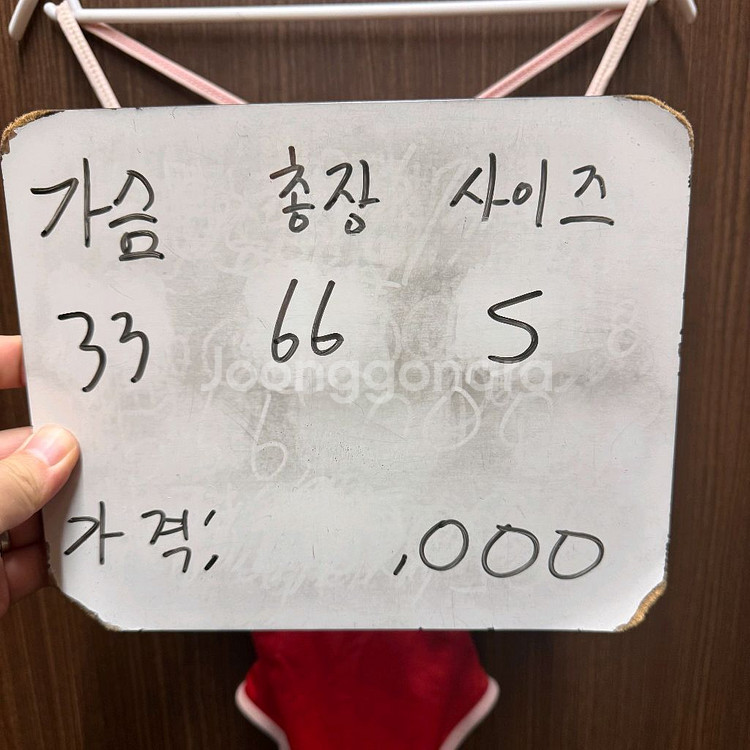 가슴 총장 사이즈
33 66 S
Joonggonara
가격; ,000